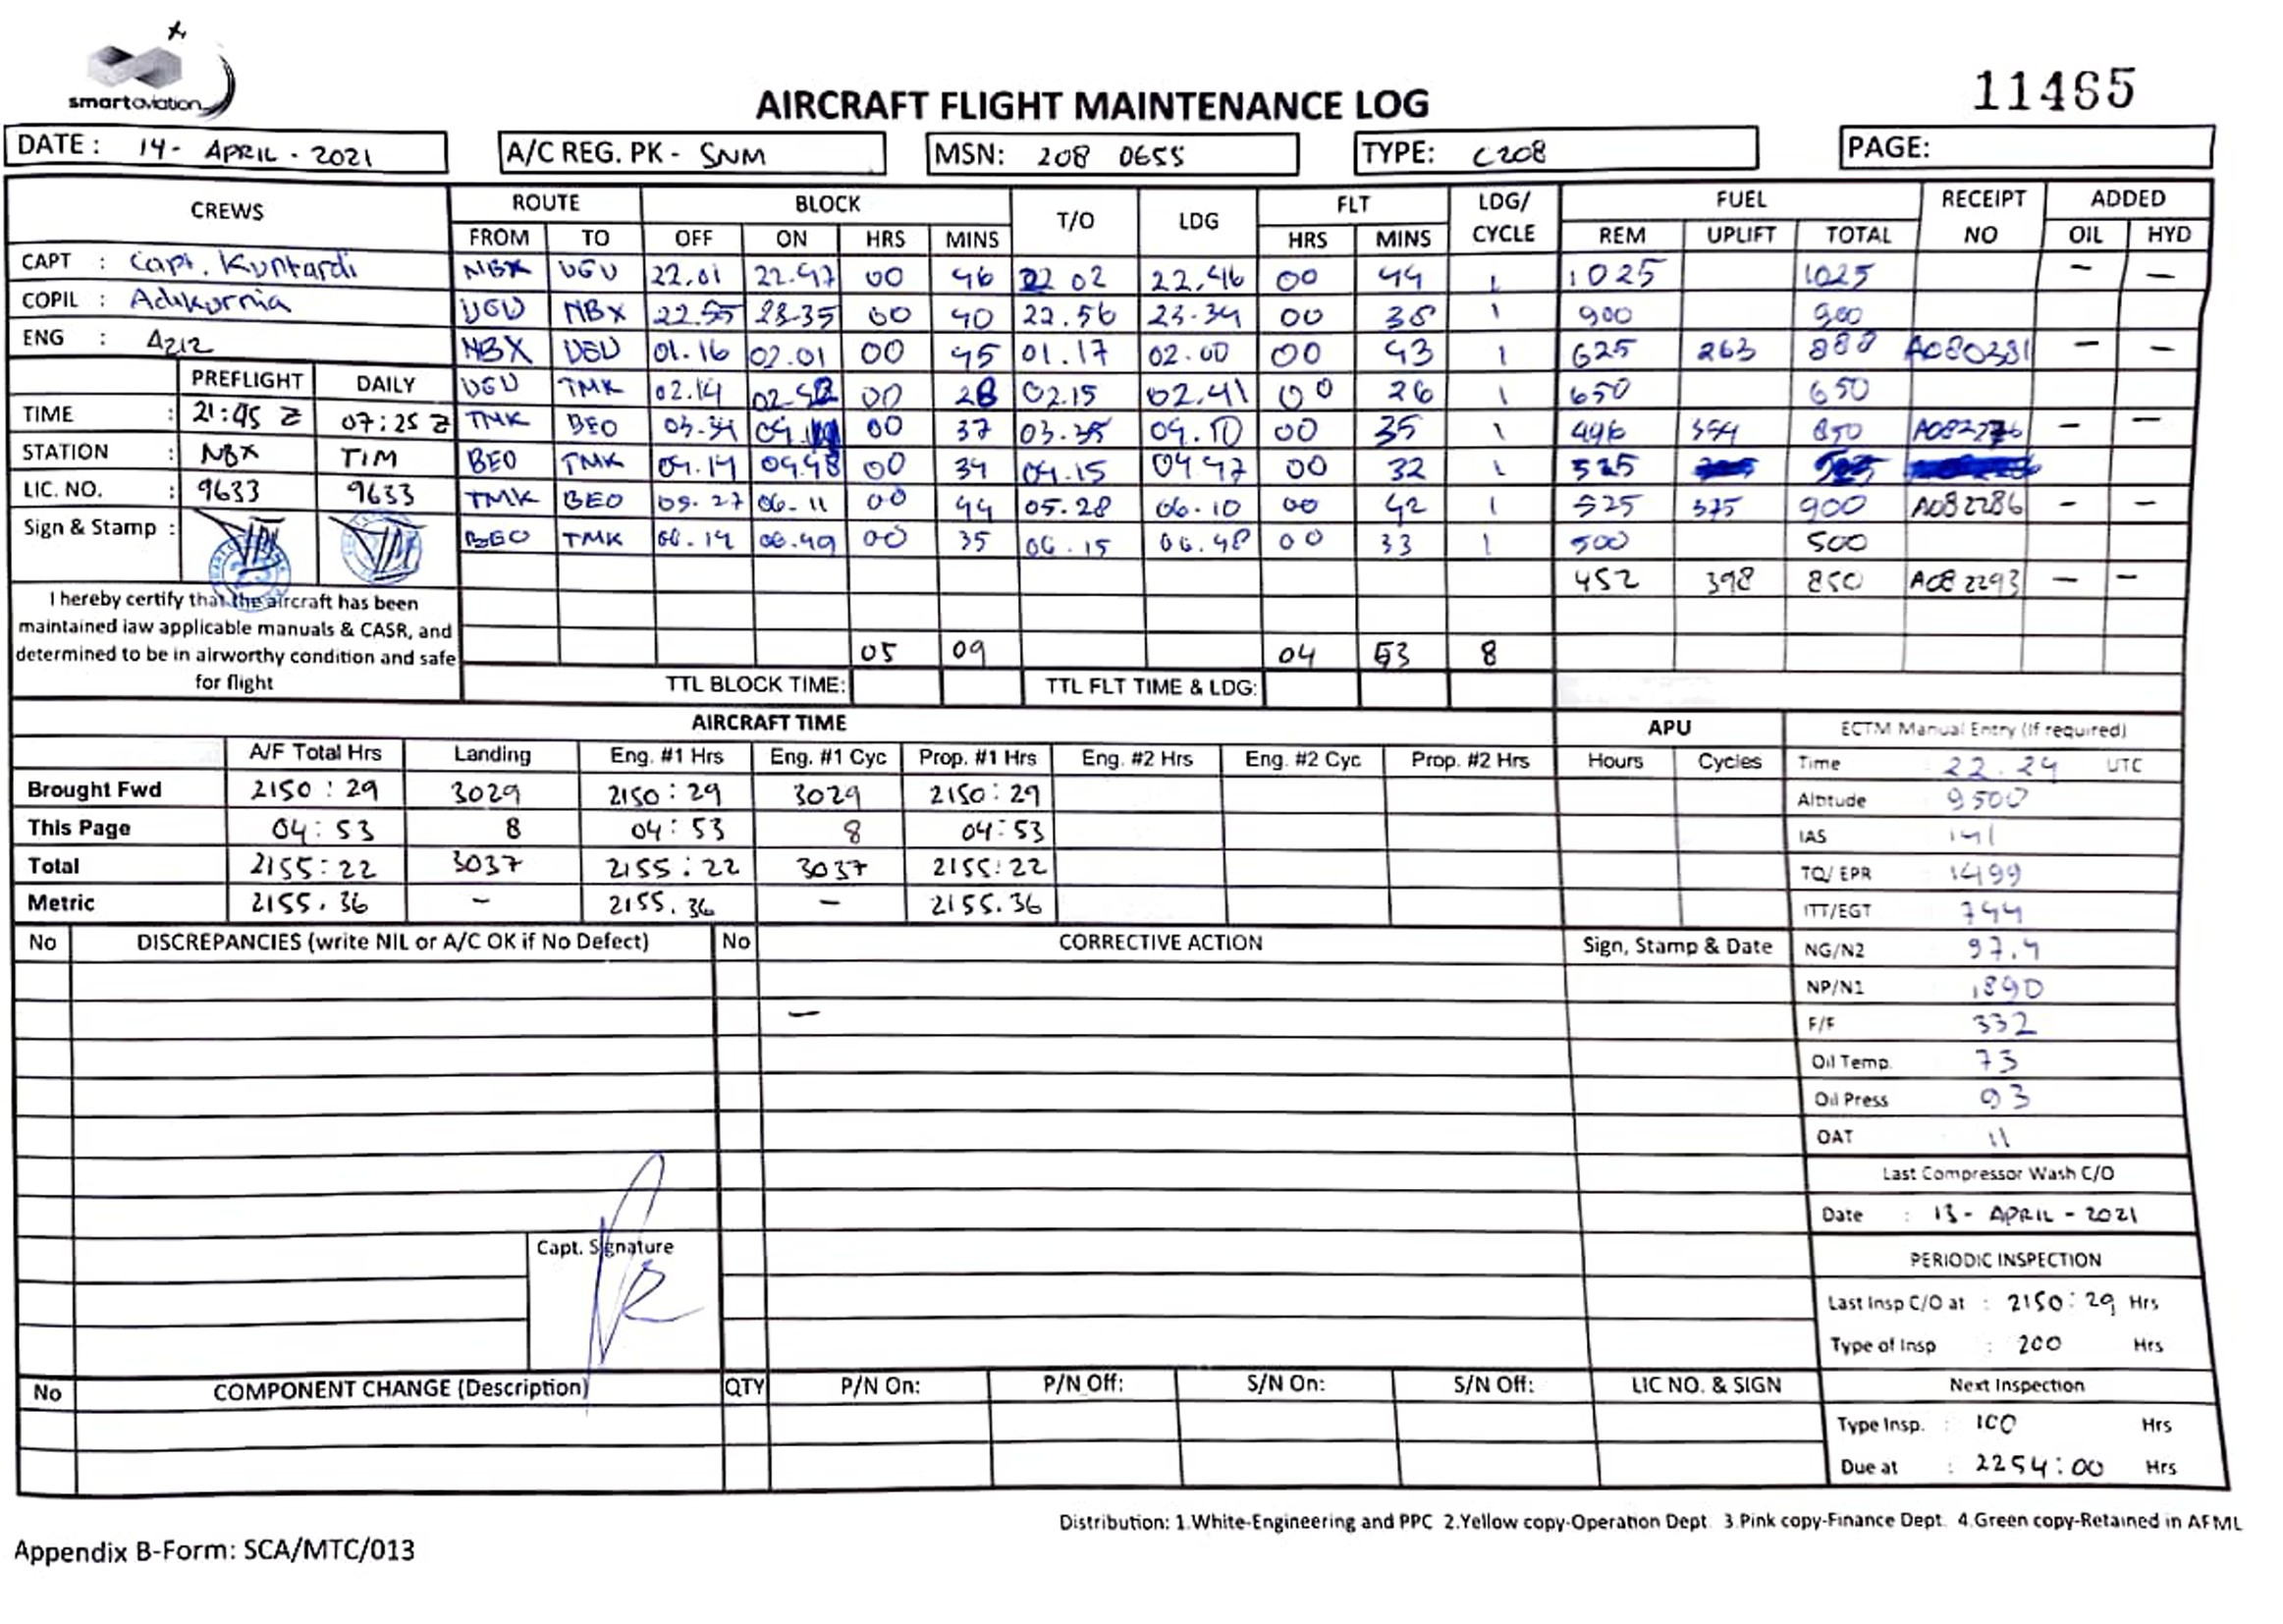 smart aviation
AIRCRAFT FLIGHT MAINTENANCE LOG
11465
DATE : 14 - APRIL - 2021 A/C REG. PK - SNM MSN: 208 0655 TYPE: C208 PAGE:
CREWS ROUTE BLOCK T/O LDG FLT LDG/ CYCLE FUEL RECEIPT NO ADDED
FROM TO OFF ON HRS MINS HRS MINS REM UPLIFT TOTAL OIL HYD
CAPT : Capt. Kuntardi NBX UGU 22.01 22.47 00 46 22 02 22.46 00 44 1 1025 1025 - -
COPIL : Adikurnia UGU NBX 22.55 23.35 00 40 22.56 23.34 00 38 1 900 900
ENG : Aziz NBX UGU 01.16 02.01 00 45 01.17 02.00 00 43 1 625 263 888 A080381 - -
PREFLIGHT DAILY UGU TMK 02.14 02.42 00 28 02.15 02.41 00 26 1 650 650
TIME : 21:45 Z 07:25 Z TMK BEO 03.34 00 37 03.35 04.10 00 35 1 496 354 850 A082276 - -
STATION : NBX TIM BEO TMK 04.14 04.48 00 34 04.15 04.47 00 32 1 525
LIC. NO. : 9633 9633 TMK BEO 05.27 06.11 00 44 05.28 06.10 00 42 1 525 375 900 A082286 - -
Sign & Stamp : BEO TMK 06.14 06.49 00 35 06.15 06.48 00 33 1 500 500
452 398 850 A082293 - -
I hereby certify that the aircraft has been
maintained iaw applicable manuals & CASR, and
determined to be in airworthy condition and safe
for flight
05 09 04 53 8
TTL BLOCK TIME: TTL FLT TIME & LDG:
AIRCRAFT TIME APU
A/F Total Hrs Landing Eng. #1 Hrs Eng. #1 Cyc Prop. #1 Hrs Eng. #2 Hrs Eng. #2 Cyc Prop. #2 Hrs Hours Cycles
Brought Fwd 2150 : 29 3029 2150 : 29 3029 2150 : 29
This Page 04 : 53 8 04 : 53 8 04 : 53
Total 2155 : 22 3037 2155 : 22 3037 2155 : 22
Metric 2155.36 - 2155.36 - 2155.36
ECTM Manual Entry (If required)
Time 22.24 UTC
Altitude 9500
IAS 141
TQ/ EPR 1499
ITT/EGT 744
NG/N2 97.4
NP/N1 1890
F/F 332
Oil Temp. 73
Oil Press 93
OAT 11
Last Compressor Wash C/O
Date : 13 - APRIL - 2021
PERIODIC INSPECTION
Last Insp C/O at : 2150 : 29 Hrs
Type of Insp : 200 Hrs
Next Inspection
Type Insp. : 100 Hrs
Due at : 2254:00 Hrs
No DISCREPANCIES (write NIL or A/C OK if No Defect) No CORRECTIVE ACTION Sign, Stamp & Date
-
Capt. Signature
No COMPONENT CHANGE (Description) QTY P/N On: P/N Off: S/N On: S/N Off: LIC NO. & SIGN
Distribution: 1.White-Engineering and PPC 2.Yellow copy-Operation Dept 3.Pink copy-Finance Dept. 4.Green copy-Retained in AFML
Appendix B-Form: SCA/MTC/013